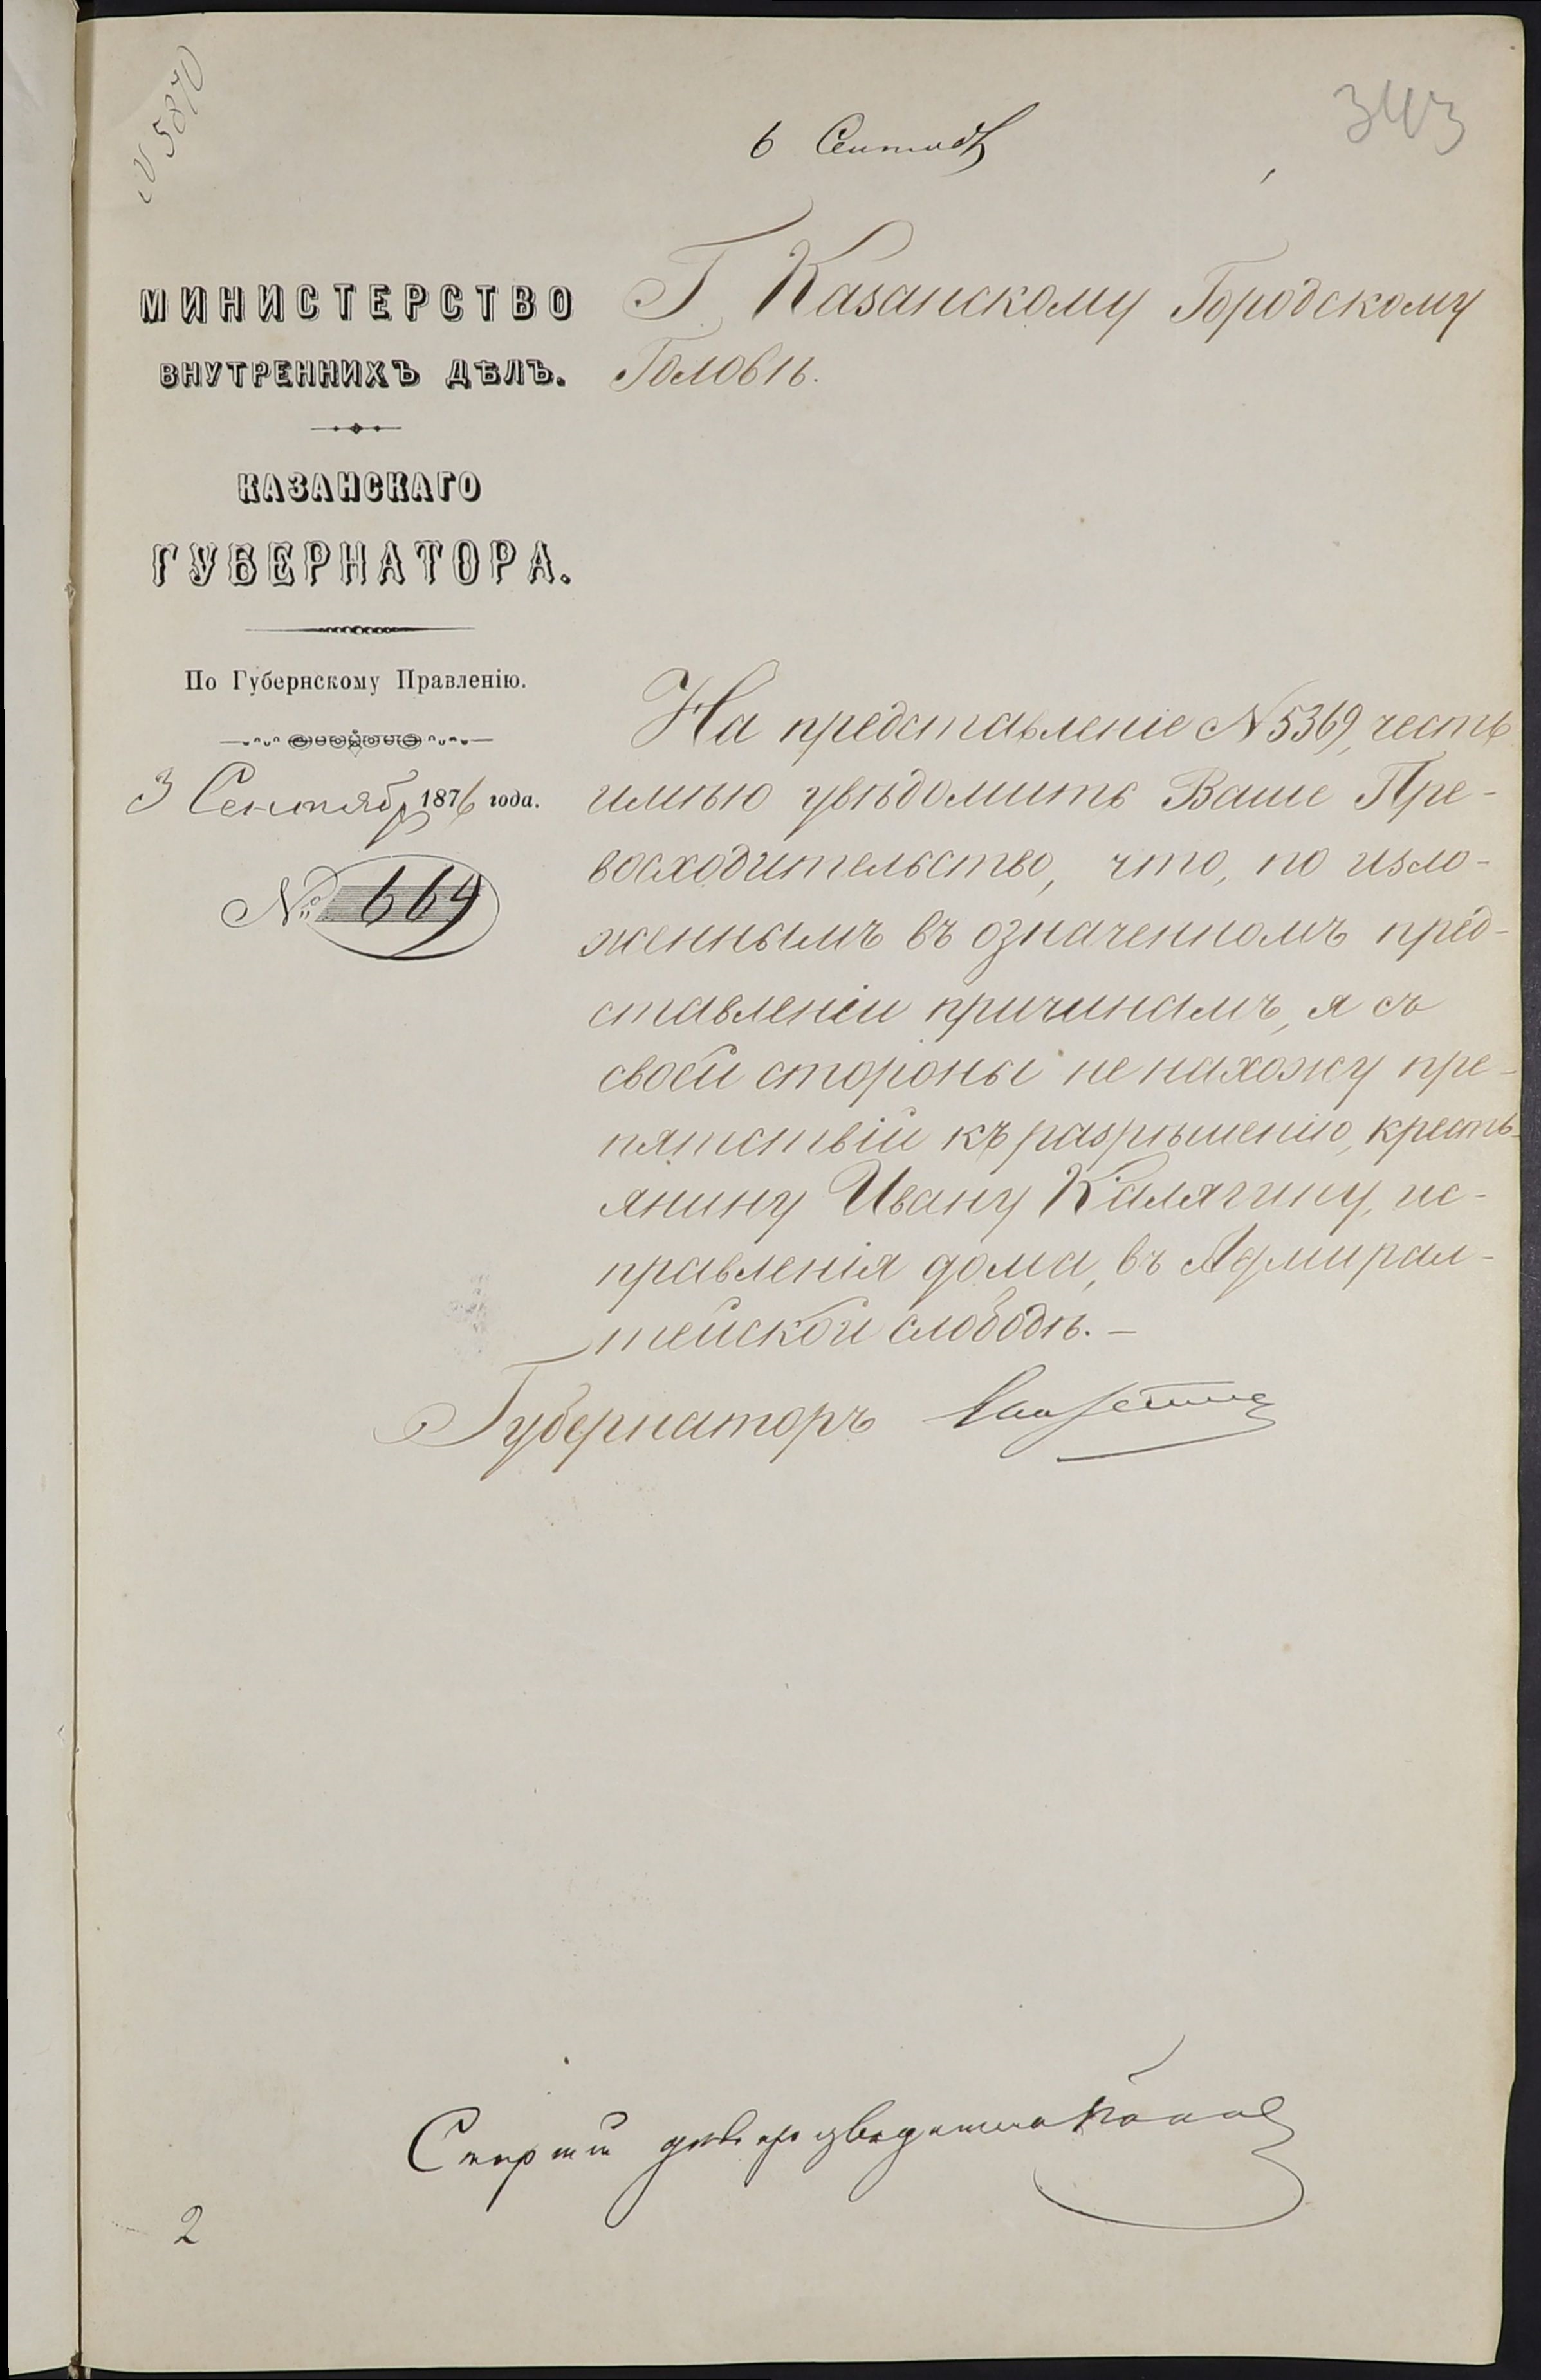 № 5870
343
6 Сентяб
МИНИСТЕРСТВО
ВНУТРЕННИХЪ ДѢЛЪ.
КАЗАНСКАГО
ГУБЕРНАТОРА.
По Губернскому Правленію.
3 Сентября 1876 года.
№ 664
Г. Казанскому Городскому
Головѣ.
На представленіе № 5369, честь
имѣю увѣдомить Ваше Пре-
восходительство, что, по изло-
женнымъ въ означенномъ пред-
ставленіи причинамъ, я съ
своей стороны не нахожу пре-
пятствій къ разрѣшенію, кресть-
янину Ивану Калягину, ис-
правленія дома, въ Адмирал-
тейской слободѣ. —
Губернаторъ
Старшій дѣлопроизводитель
2